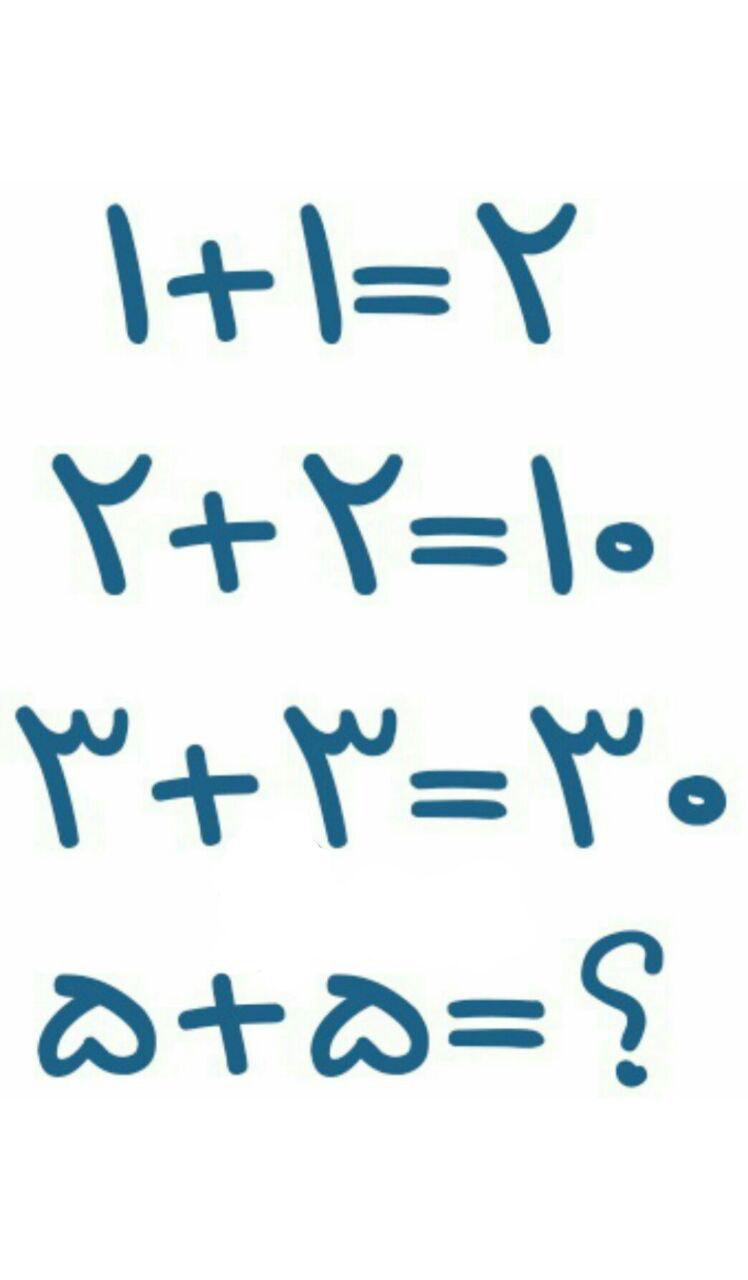 ۱+۱=۲
۲+۲=۱۰
۳+۳=۳۰
۵+۵=؟